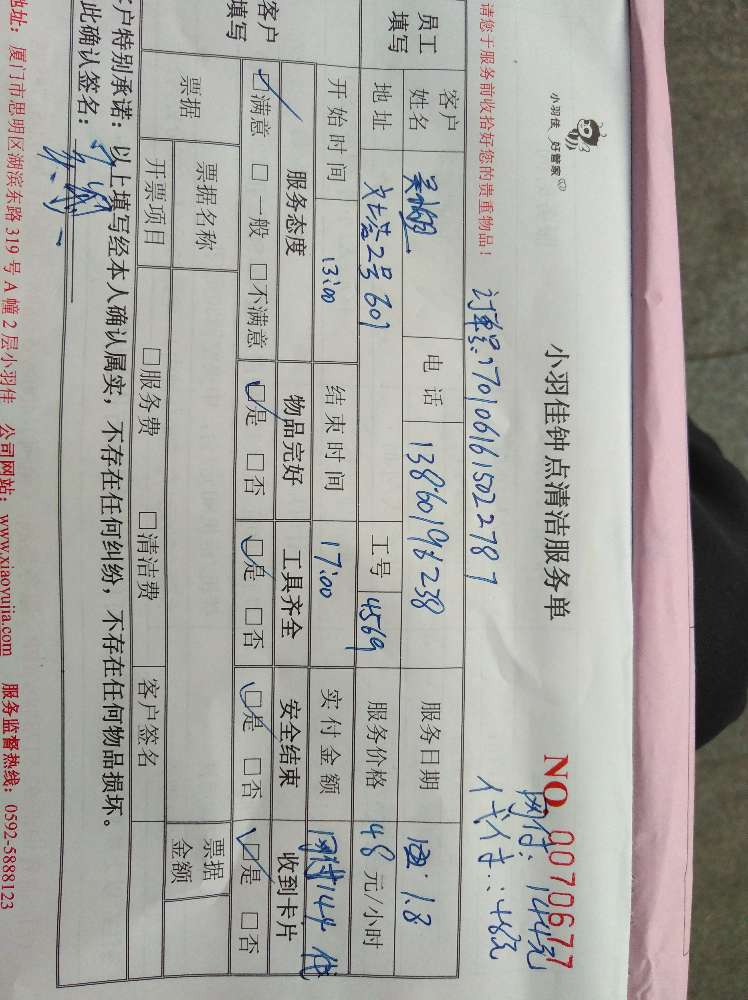 小羽佳 好管家
小羽佳钟点清洁服务单
NO. 0070677
请您于服务前收拾好您的贵重物品！
网付：144元
代付：48元
员工填写
客户姓名
电话 13860198238
服务日期 1.8
地址 2号601
工号 4569
服务价格 48 元/小时
开始时间 13:00
结束时间 17:00
实付金额 网付144
客户填写
服务态度 物品完好 工具齐全 安全结束 收到卡片
☑满意 □一般 □不满意 ☑是 □否 ☑是 □否 ☑是 □否 ☑是 □否
票据 票据名称 票据金额
开票项目 □服务费 □清洁费 客户签名
客户特别承诺：以上填写经本人确认属实，不存在任何纠纷，不存在任何物品损坏。
此确认签名：
地址：厦门市思明区湖滨东路 319 号 A 幢 2 层小羽佳 公司网站：www.xiaoyujia.com 服务监督热线：0592-5888123